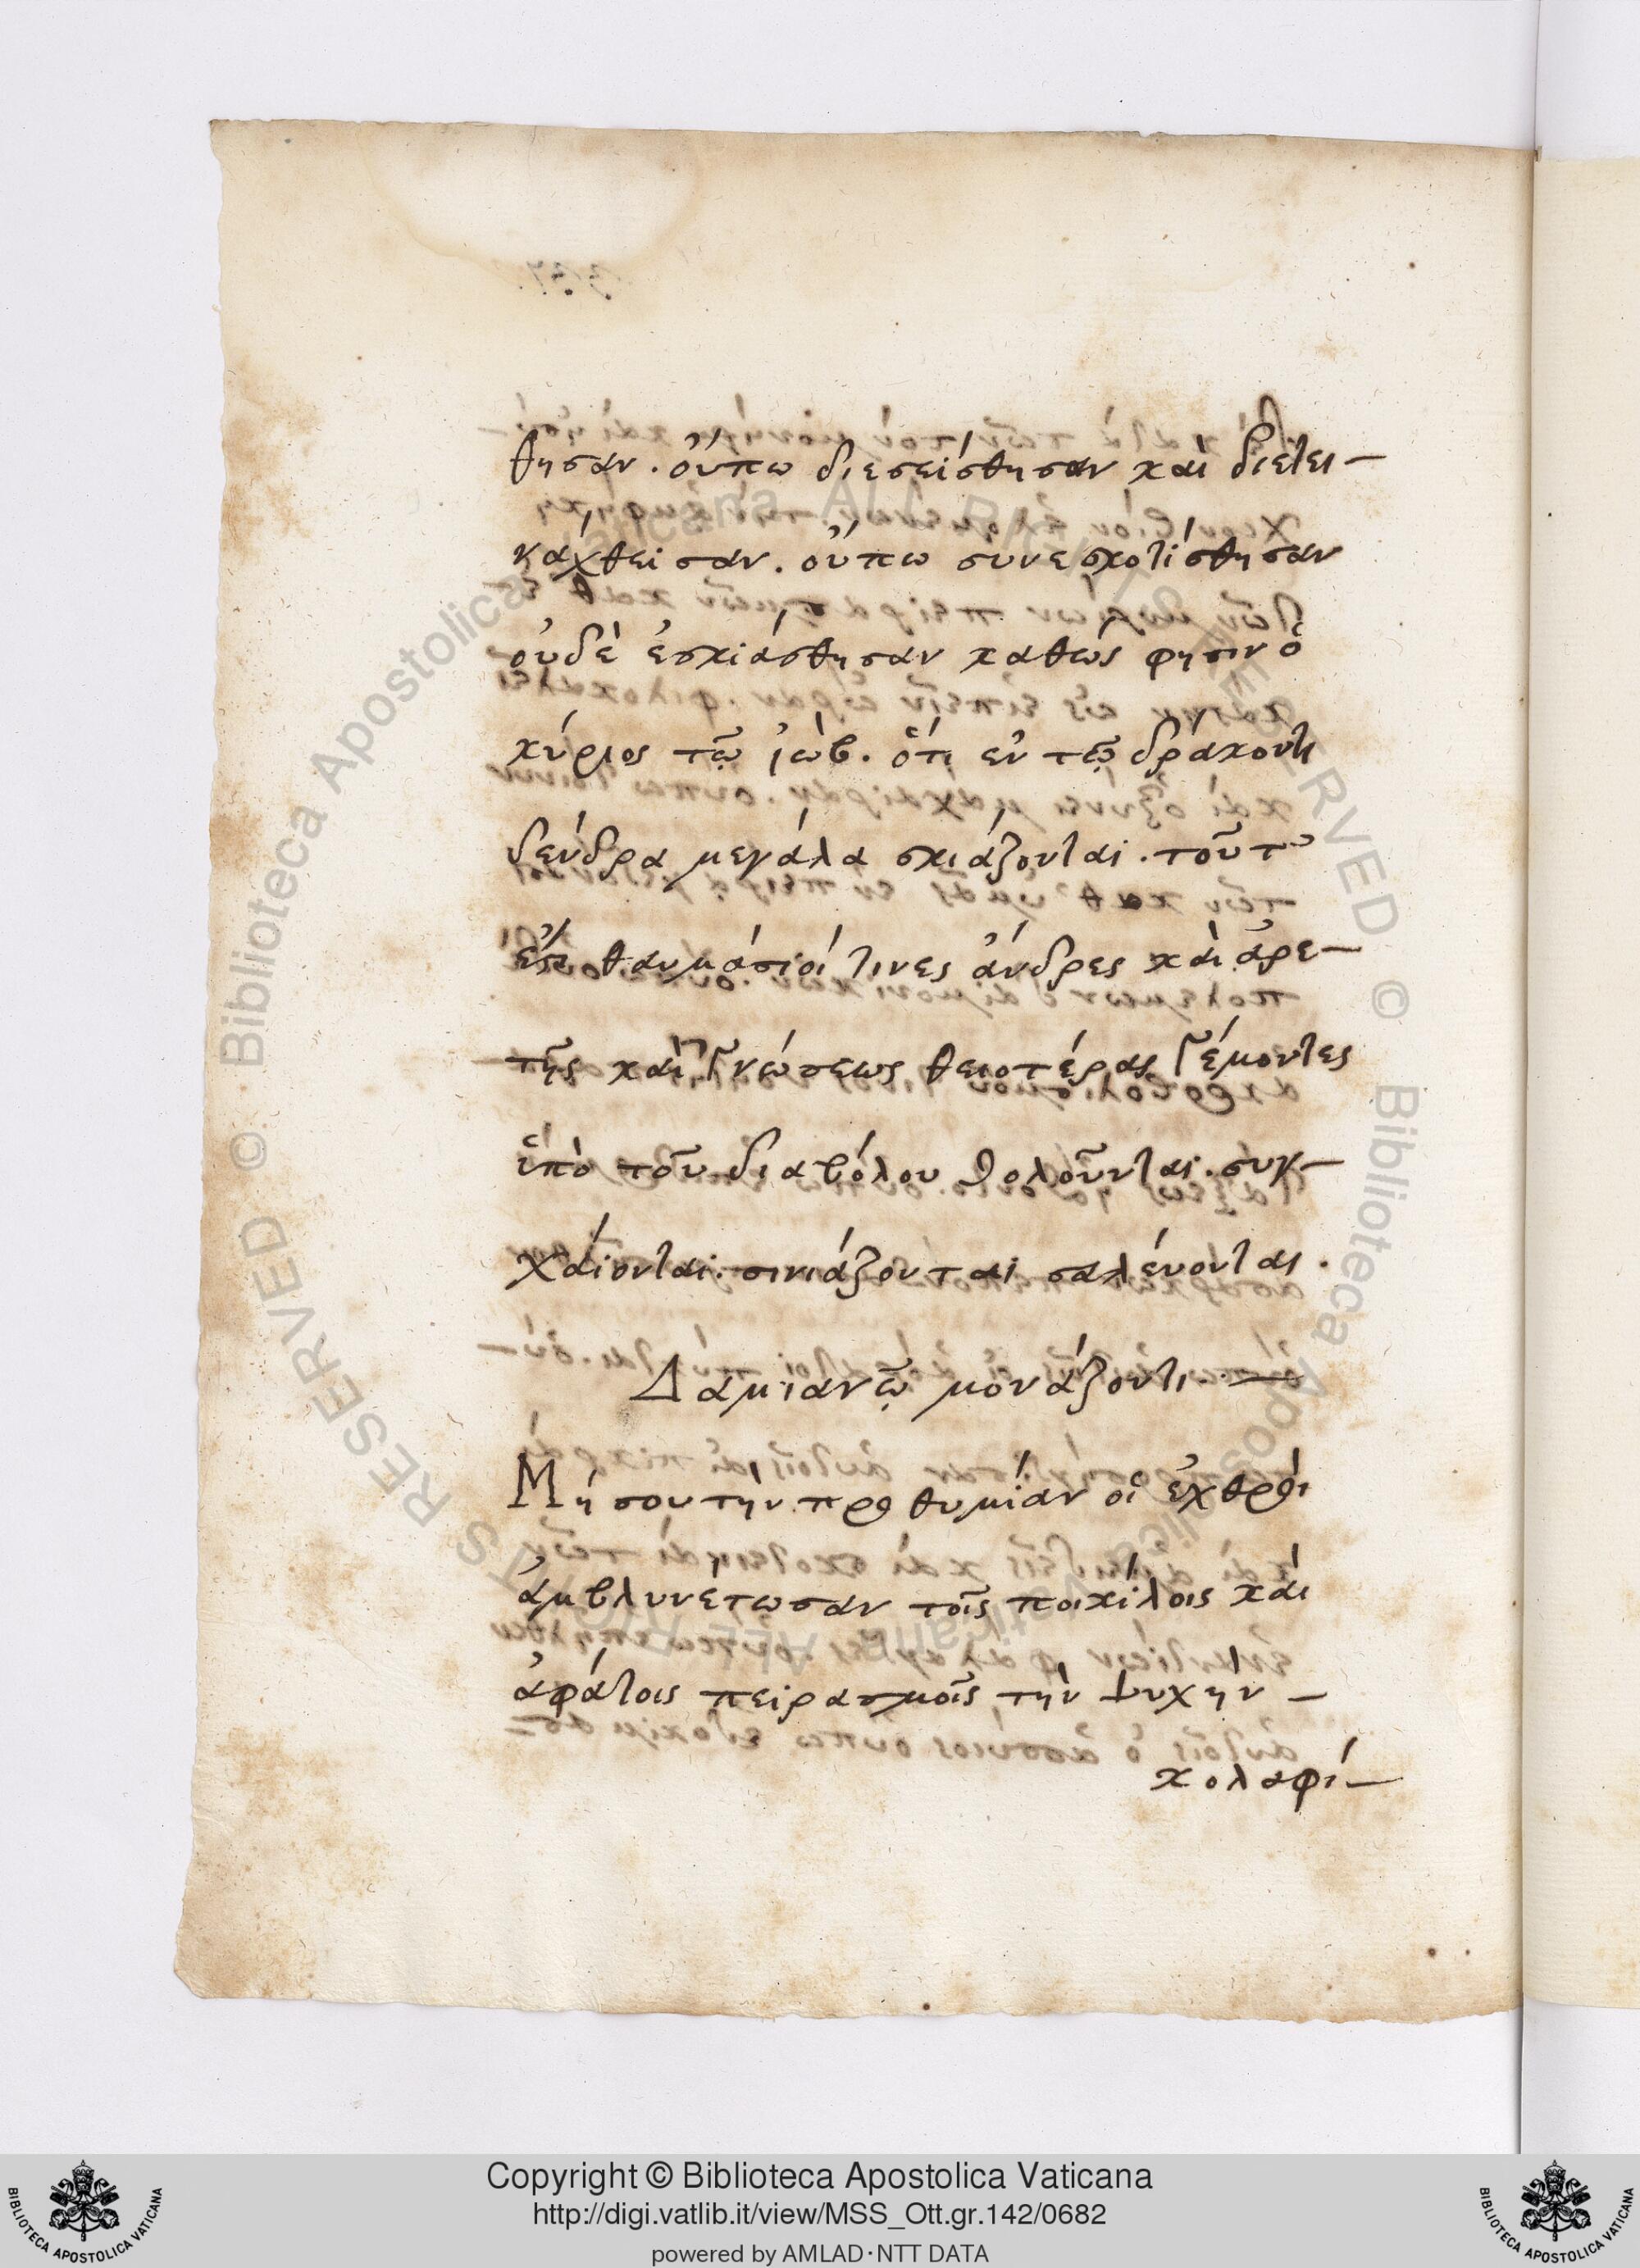 θησαν. οὔπω διεσείσθησαν καὶ διετει-
νάχθεισαν. οὔπω συνεσκοτίσθησαν
οὐδὲ ἐσκιάσθησαν καθὼς φησιν ὁ
κύριος τῷ ἰὼβ. ὅτι ἐν τῷ δράκοντι
δένδρα μεγάλα σκιάζονται. τοῦτο
ἔστι θαυμάσιοί τινες ἄνδρες καὶ ἀρε-
τῆς καὶ γνώσεως θειοτέρας γέμοντες
ὑπὸ τοῦ διαβόλου θολοῦνται. συγ-
χαίονται. σινιάζονται σαλέυονται.
Δαμιανῷ μονάζοντι.
Μή σου τὴν προθυμίαν οἱ ἐχθροὶ
ἀμβλυνέτωσαν τοῖς ποικίλοις καὶ
ἀφάτοις πειρασμοῖς τὴν ψυχὴν -
κολαφί-
© Biblioteca Apostolica Vaticana ALL RIGHTS RESERVED
© Biblioteca Apostolica Vaticana ALL RIGHTS RESERVED
Copyright © Biblioteca Apostolica Vaticana
http://digi.vatlib.it/view/MSS_Ott.gr.142/0682
powered by AMLAD·NTT DATA
BIBLIOTECA APOSTOLICA VATICANA
BIBLIOTECA APOSTOLICA VATICANA